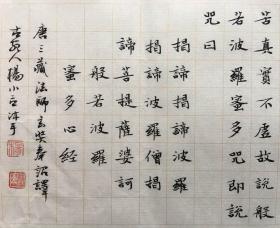 苦真實不虛故說般
若波羅蜜多咒即說
咒曰
揭諦揭諦波羅
揭諦波羅僧揭
諦菩提薩婆訶
般若波羅
蜜多心経
唐三藏法師玄奘奉詔譯